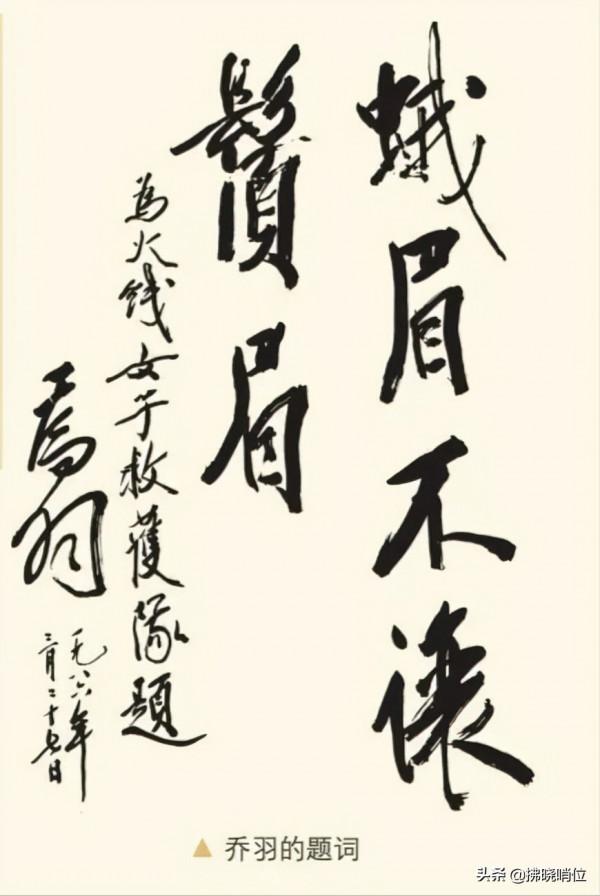 蛾眉不讓
鬚眉
為火綫女子救護隊題
喬羽
一九八六年
三月二十七日
▲ 乔羽的题词
头条 @拂晓哨位